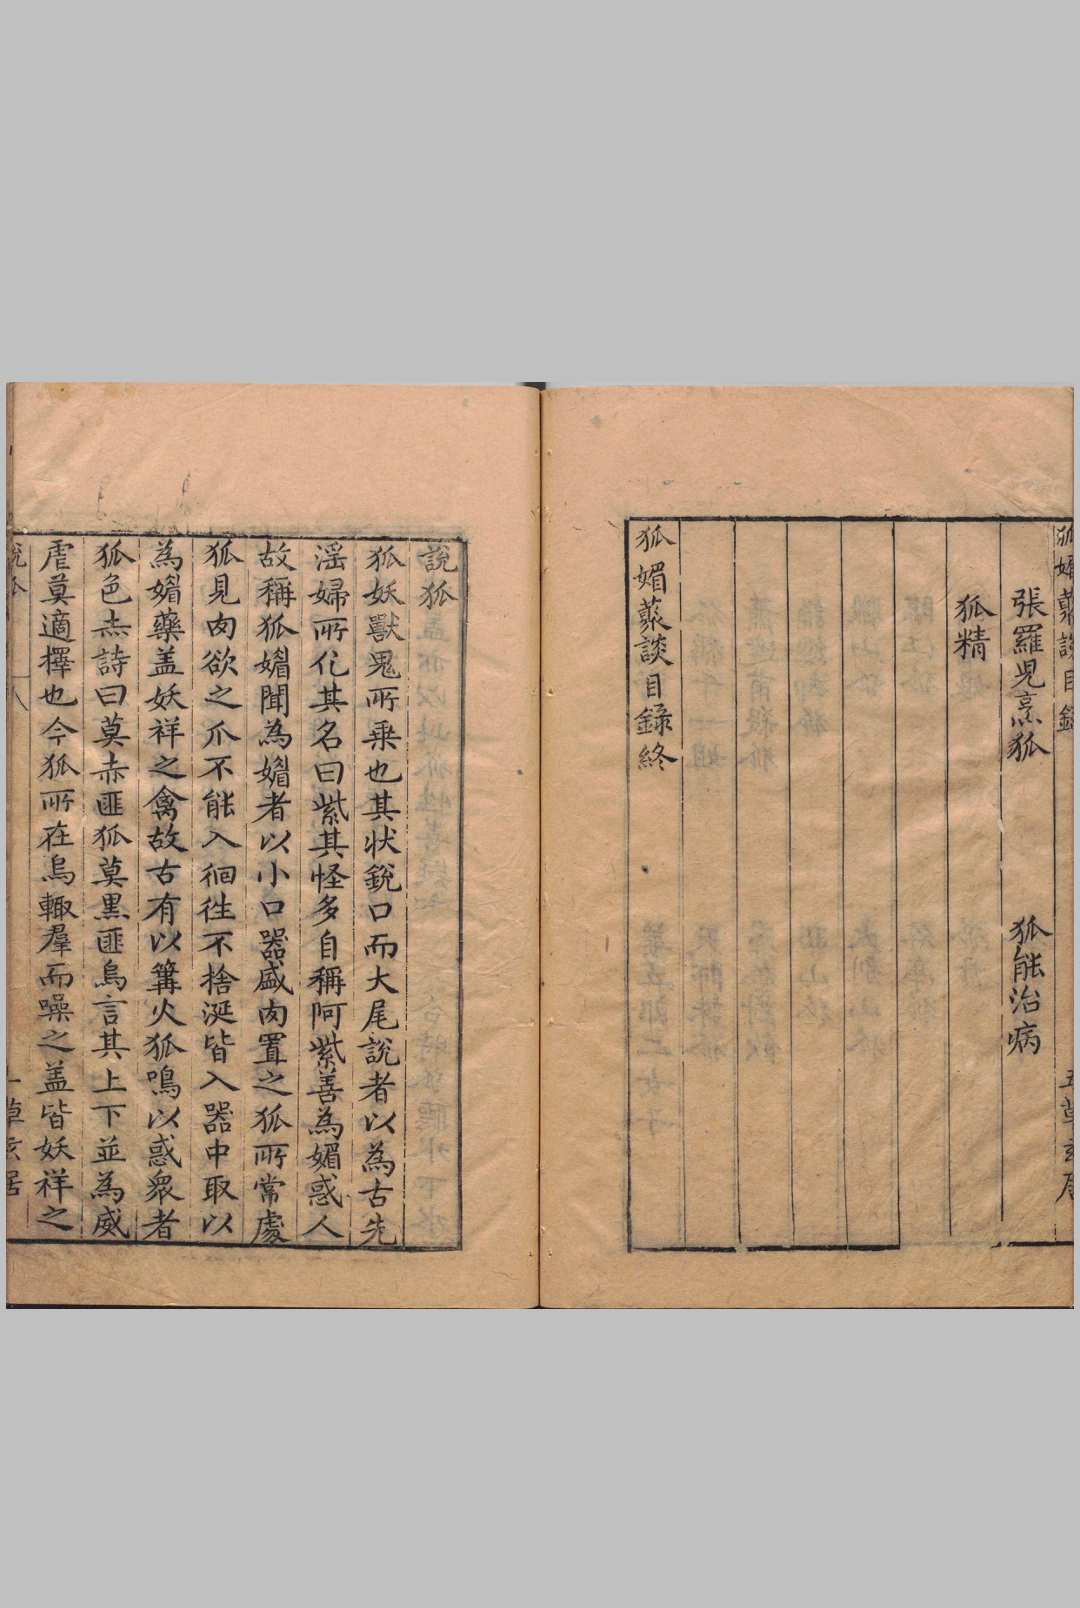 狐媚叢談目錄
五 草玄居
張羅児烹狐 狐能治病
狐精
狐媚叢談目錄終
說狐
狐妖獸鬼所乗也其状銳口而大尾說者以為古先
滛婦所化其名曰紫其怪多自稱阿紫善為媚惑人
故稱狐媚聞為媚者以小口器盛肉置之狐所常處
狐見肉欲之爪不能入徊徃不捨涎皆入器中取以
為媚藥盖妖祥之禽故古有以篝火狐鳴以惑衆者
狐色赤詩曰莫赤匪狐莫黒匪烏言其上下並為威
虐莫適擇也今狐所在烏輙羣而噪之盖皆妖祥之
說狐 八 一 草玄居